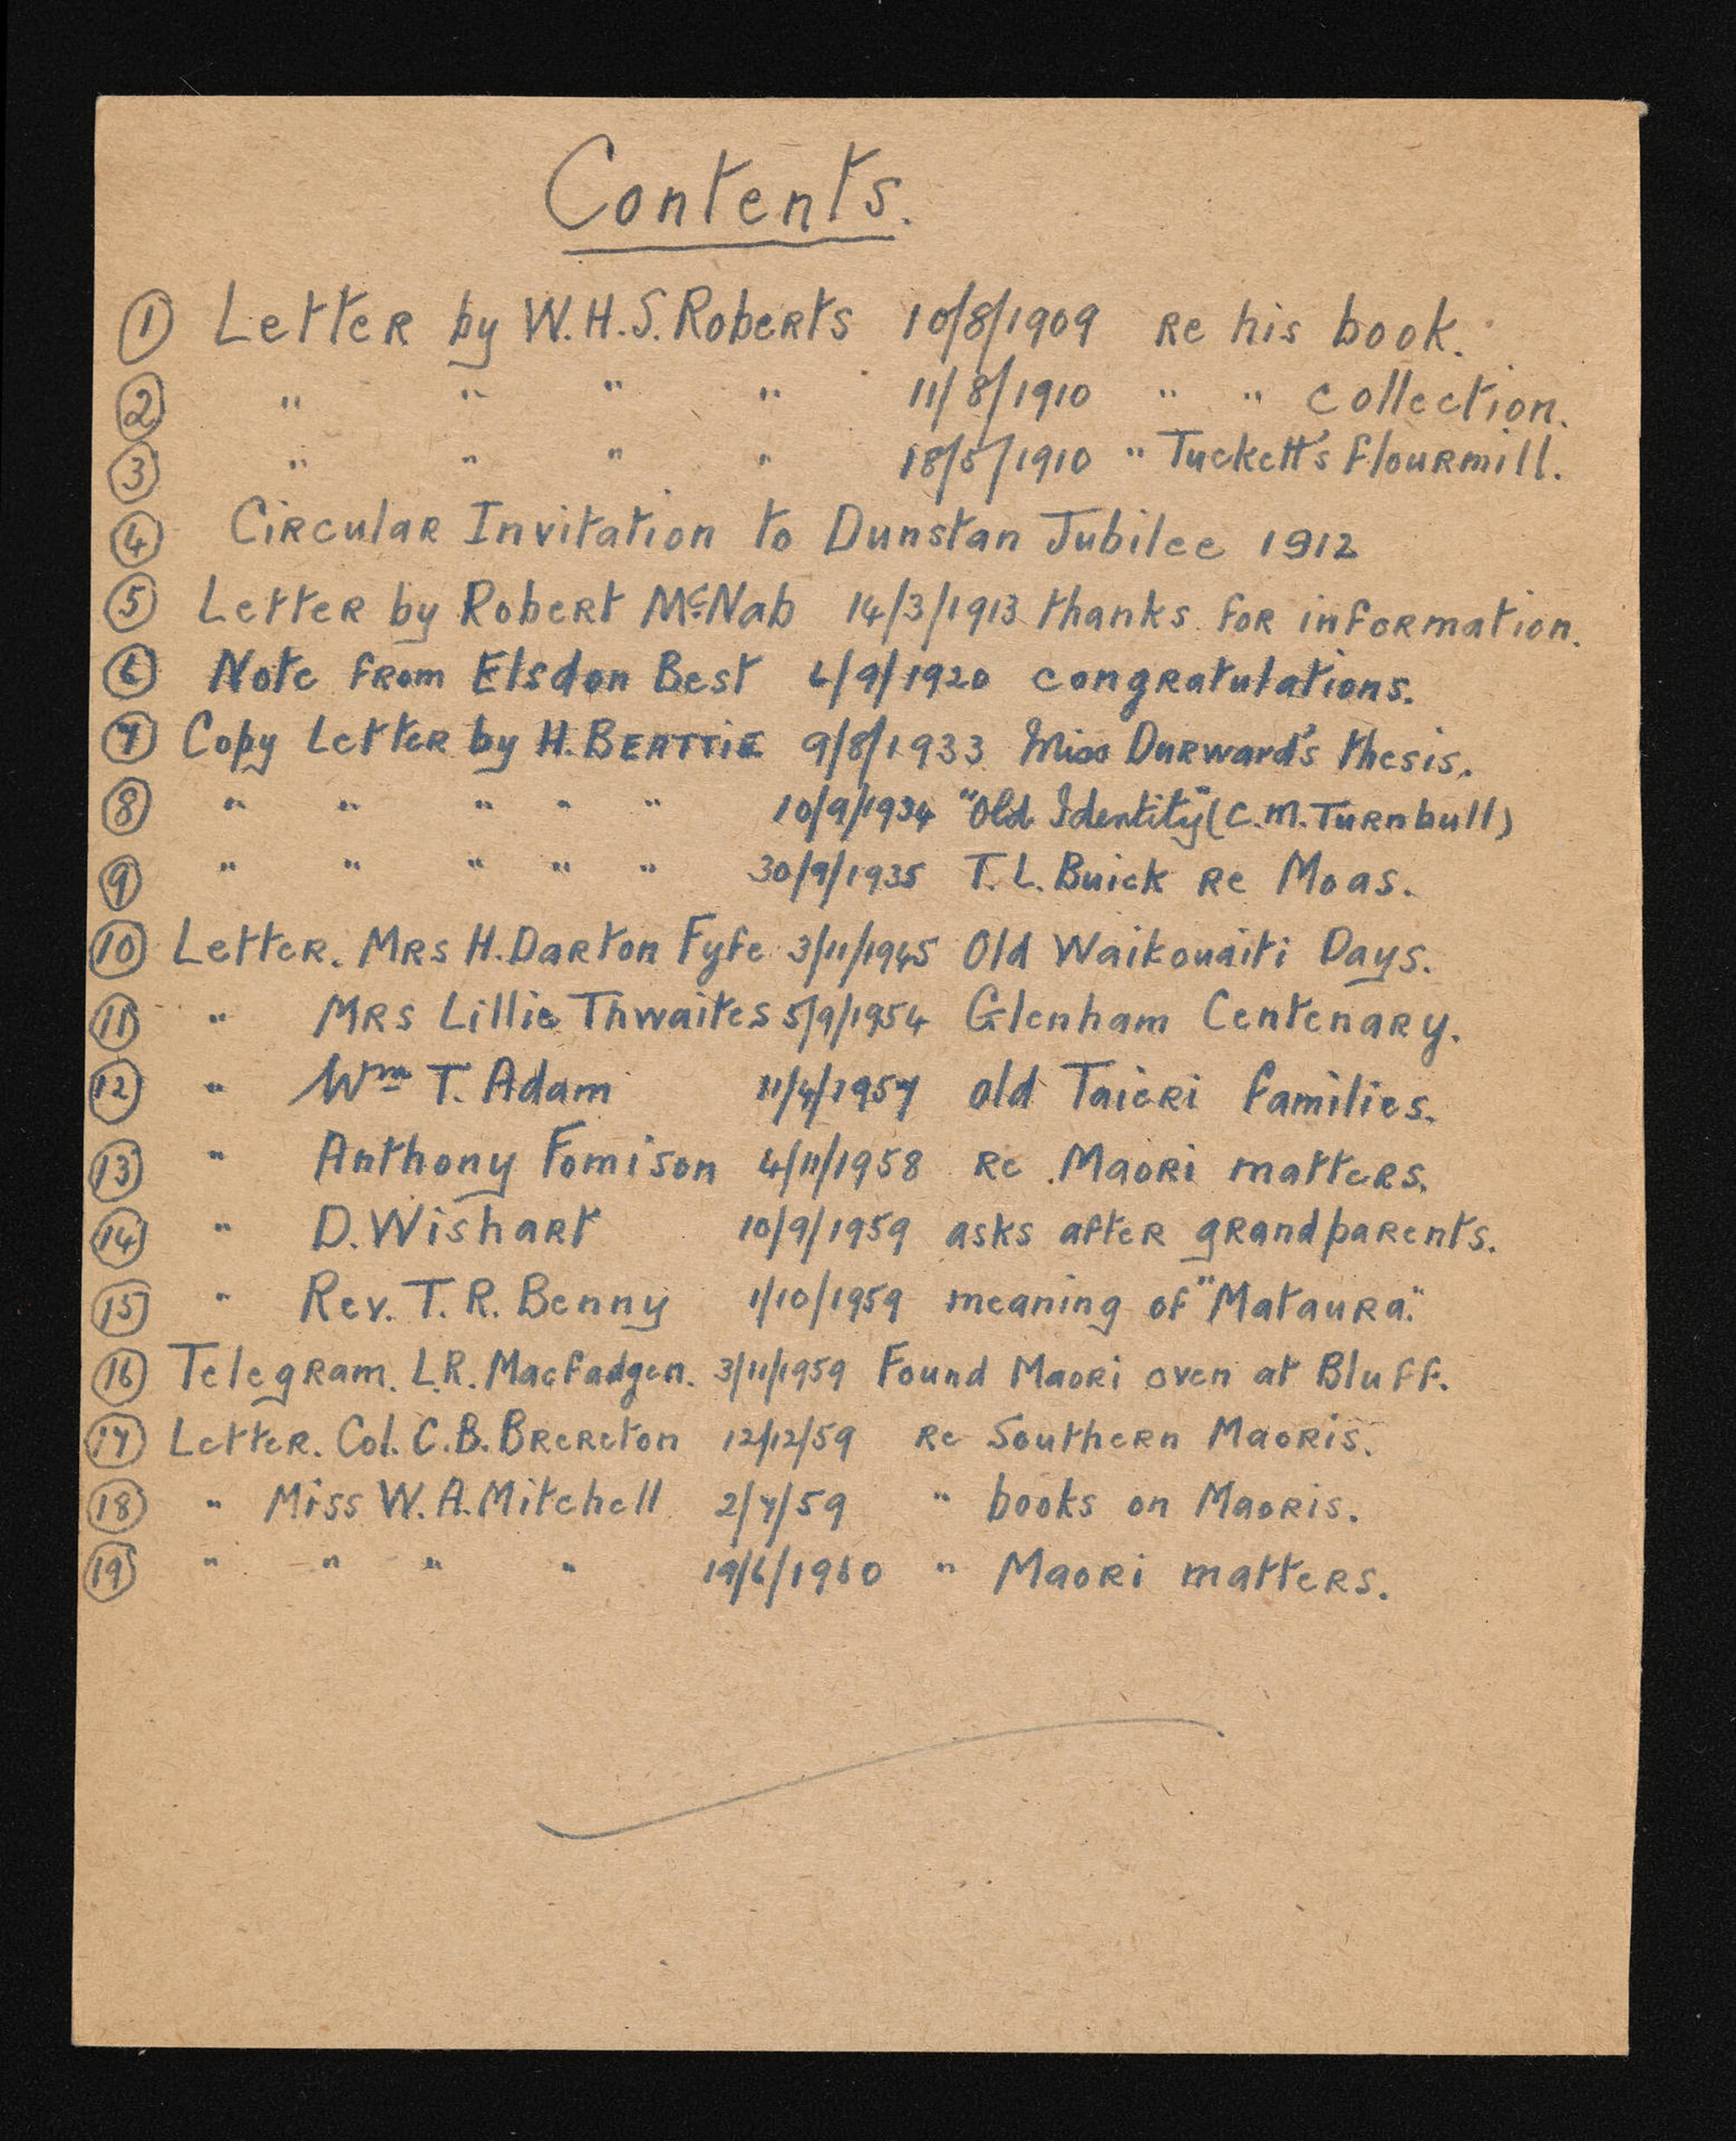 Contents.
① Letter by W.H.S. Roberts 10/8/1909 re his book.
② " " " " 11/8/1910 " " collection.
③ " " " " 18/5/1910 " Tuckett's flourmill.
④ Circular Invitation to Dunstan Jubilee 1912
⑤ Letter by Robert McNab 14/3/1913 thanks for information.
⑥ Note from Elsdon Best 6/9/1920 congratulations.
⑦ Copy Letter by H. BEATTIE 9/8/1933 Miss Durward's thesis.
⑧ " " " " " 10/9/1934 "Old Identity" (C.M. Turnbull)
⑨ " " " " " 30/9/1935 T.L. Buick re Moas.
⑩ Letter. Mrs H. Darton Fyfe 3/11/1945 Old Waikouaiti Days.
⑪ " Mrs Lillie Thwaites 5/9/1954 Glenham Centenary.
⑫ " Wm T. Adam 11/4/1957 old Taieri families.
⑬ " Anthony Fomison 4/11/1958 re Maori matters.
⑭ " D. Wishart 10/9/1959 asks after grandparents.
⑮ " Rev. T. R. Benny 1/10/1959 meaning of "Mataura."
⑯ Telegram. L.R. Macfadgen. 3/11/1959 Found Maori oven at Bluff.
⑰ Letter. Col. C.B. Brereton 12/12/59 re Southern Maoris.
⑱ " Miss W.A. Mitchell 2/7/59 " books on Maoris.
⑲ " " " " 19/6/1960 " Maori matters.